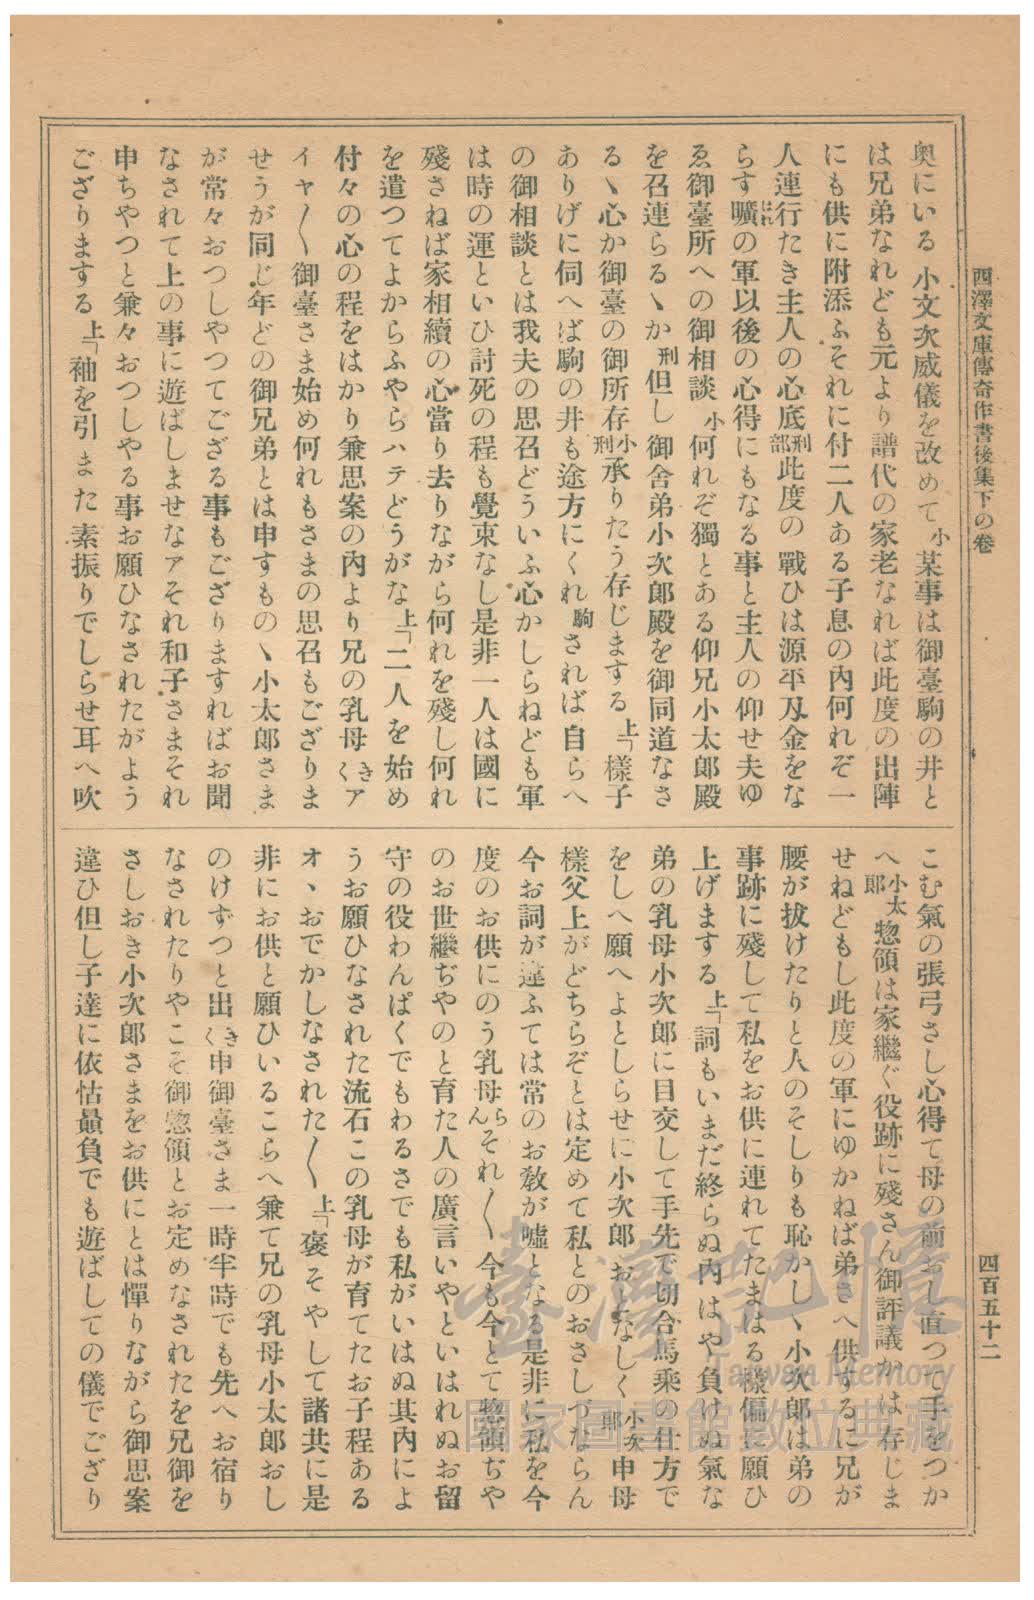 西澤文庫傳奇作書後集下の卷
四百五十二
奥にいる 小文次威儀を改めて 小 某事は御臺駒の井と
は兄弟なれども元より譜代の家老なれば此度の出陣
にも供に附添ふそれに付二人ある子息の內何れぞ一
人連行たき主人の心底 刑部 此度の戰ひは源平刄金をな
らす曠の軍以後の心得にもなる事と主人の仰せ夫ゆ
ゑ御臺所への御相談 小 何れぞ獨とある仰兄小太郎殿
を召連らるゝか 刑 但し御舍弟小次郎殿を御同道なさ
るゝ心か御臺の御所存 小刑 承りたう存じまする 上「樣子
ありげに伺へば駒の井も途方にくれ 駒 されば自らへ
の御相談とは我夫の思召どういふ心かしらねども軍
は時の運といひ討死の程も覺束なし是非一人は國に
殘さねば家相續の心當り去りながら何れを殘し何れ
を遣つてよからふやらハテどうがな 上「二人を始め
付々の心の程をはかり兼思案の內より兄の乳母 きく ア
イヤ〳〵御臺さま始め何れもさまの思召もござりま
せうが同じ年どの御兄弟とは申すものゝ小太郎さま
が常々おつしやつてござる事もござりますればお聞
なされて上の事に遊ばしませなァそれ和子さまそれ
申ちやつと兼々おつしやる事お願ひなされたがよう
ござりまする 上「袖を引また素振りでしらせ耳へ吹
こむ氣の張弓さし心得て母の前おし直つて手をつか
へ 小太郎 惣領は家繼ぐ役跡に殘さん御評議かは存じま
せねどもし此度の軍にゆかねば弟さへ供するに兄が
腰が拔けたりと人のそしりも恥かしゝ小次郎は弟の
事跡に殘して私をお供に連れてたまはる樣偏に願ひ
上げまする 上「詞もいまだ終らぬ內はや負けぬ氣な
弟の乳母小次郎に目交して手先で切合馬乘の仕方で
をしへ願へよとしらせに小次郎おとなしく 小次郎 申母
樣父上がどちらぞとは定めて私とのおさしづならん
今お詞が違ふては常のお敎が噓となる是非に私を今
度のお供にのう乳母 らん それ〳〵今も今とて惣領ぢや
のお世繼ぢやのと育た人の廣言いやといはれぬお留
守の役わんぱくでもわるさでも私がいはぬ其內によ
うお願ひなされた流石この乳母が育てたお子程ある
オヽおでかしなされた〳〵 上「褒そやして諸共に是
非にお供と願ひいるこらへ兼て兄の乳母小太郎おし
のけずつと出 きく 申御臺さま一時半時でも先へお宿り
なされたりやこそ御惣領とお定めなされたを兄御を
さしおき小次郎さまをお供にとは憚りながら御思案
違ひ但し子達に依怙贔負でも遊ばしての儀でござり
臺灣記憶
Taiwan Memory
國家圖書館數位典藏